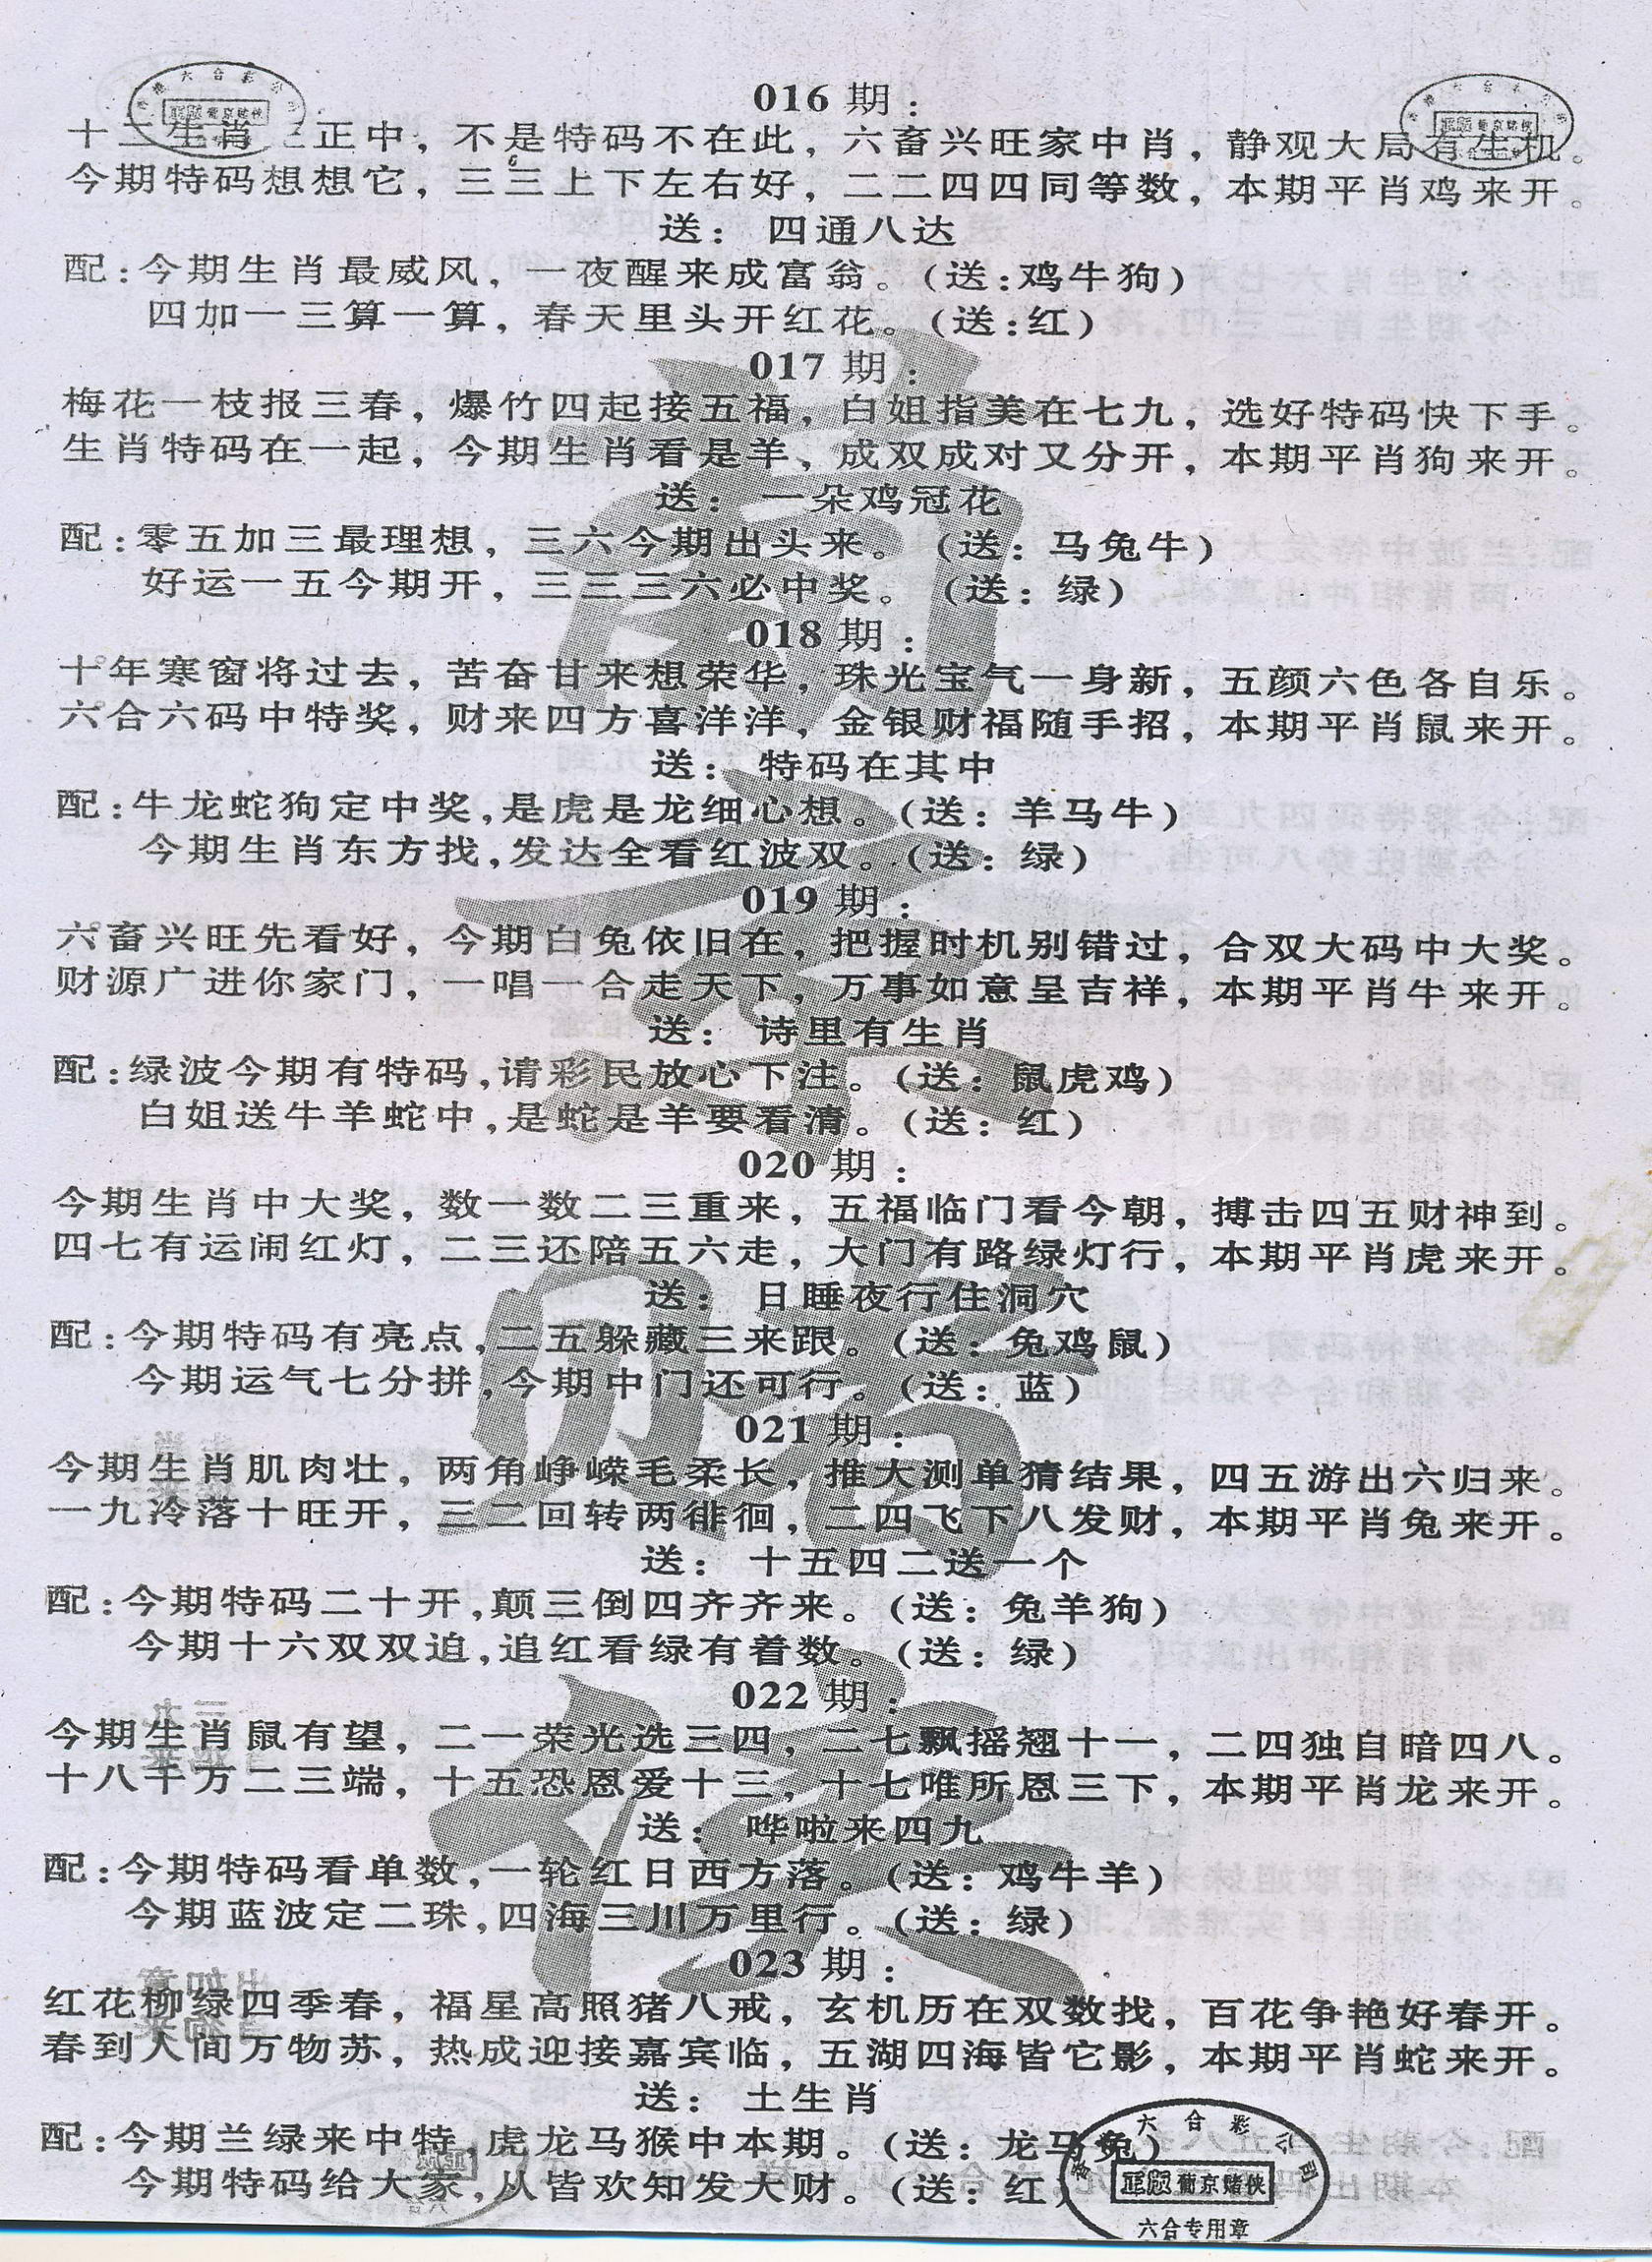 016 期：
十二生肖 正中，不是特码不在此，六畜兴旺家中肖，静观大局有生机。
今期特码想想它，三三上下左右好，二二四四同等数，本期平肖鸡来开。
送： 四通八达
配：今期生肖最威风，一夜醒来成富翁。（送：鸡牛狗）
四加一三算一算，春天里头开红花。（送：红）
017 期：
梅花一枝报三春，爆竹四起接五福，白姐指美在七九，选好特码快下手。
生肖特码在一起，今期生肖看是羊、成双成对又分开，本期平肖狗来开。
送： 一朵鸡冠花
配：零五加三最理想，三六今期出头来。（送：马兔牛）
好运一五今期开，三三三六必中奖。（送：绿）
018 期：
十年寒窗将过去，苦奋甘来想荣华，珠光宝气一身新，五颜六色各自乐。
六合六码中特奖，财来四方喜洋洋，金银财福随手招，本期平肖鼠来开。
送： 特码在其中
配：牛龙蛇狗定中奖，是虎是龙细心想。（送：羊马牛）
今期生肖东方找，发达全看红波双。（送：绿）
019 期：
六畜兴旺先看好，今期白兔依旧在，把握时机别错过，合双大码中大奖。
财源广进你家门，一唱一合走天下，万事如意呈吉祥，本期平肖牛来开。
送： 诗里有生肖
配：绿波今期有特码，请彩民放心下注。（送：鼠虎鸡）
白姐送牛羊蛇中，是蛇是羊要看清。（送：红）
020 期：
今期生肖中大奖，数一数二三重来，五福临门看今朝，搏击四五财神到。
四七有运闹红灯，二三还陪五六走，大门有路绿灯行，本期平肖虎来开。
送： 日睡夜行住洞穴
配：今期特码有亮点，二五躲藏三来跟。（送：兔鸡鼠）
今期运气七分拼，今期中门还可行。（送：蓝）
021 期：
今期生肖肌肉壮，两角峥嵘毛柔长，推大测单猜结果，四五游出六归来。
一九冷落十旺开，三二回转两徘徊，二四飞下八发财，本期平肖兔来开。
送： 十五四二送一个
配：今期特码二十开，颠三倒四齐齐来。（送：兔羊狗）
今期十六双双迫，追红看绿有着数。（送：绿）
022 期：
今期生肖鼠有望，二一荣光选三四，二七飘摇翘十一，二四独自暗四八。
十八千万二三端，十五恐恩爱十三，十七唯所恩三下，本期平肖龙来开。
送： 哗啦来四九
配：今期特码看单数，一轮红日西方落。（送：鸡牛羊）
今期蓝波定二珠，四海三川万里行。（送：绿）
023 期：
红花柳绿四季春，福星高照猪八戒，玄机历在双数找，百花争艳好春开。
春到人间万物苏，热成迎接嘉宾临，五湖四海皆它影，本期平肖蛇来开。
送： 土生肖
配：今期兰绿来中特，虎龙马猴中本期。（送：龙马兔）
今期特码给大家，从皆欢知发大财。（送：红）
香港六合彩公司
正版葡京赌侠
六合专用章
葡京赌侠